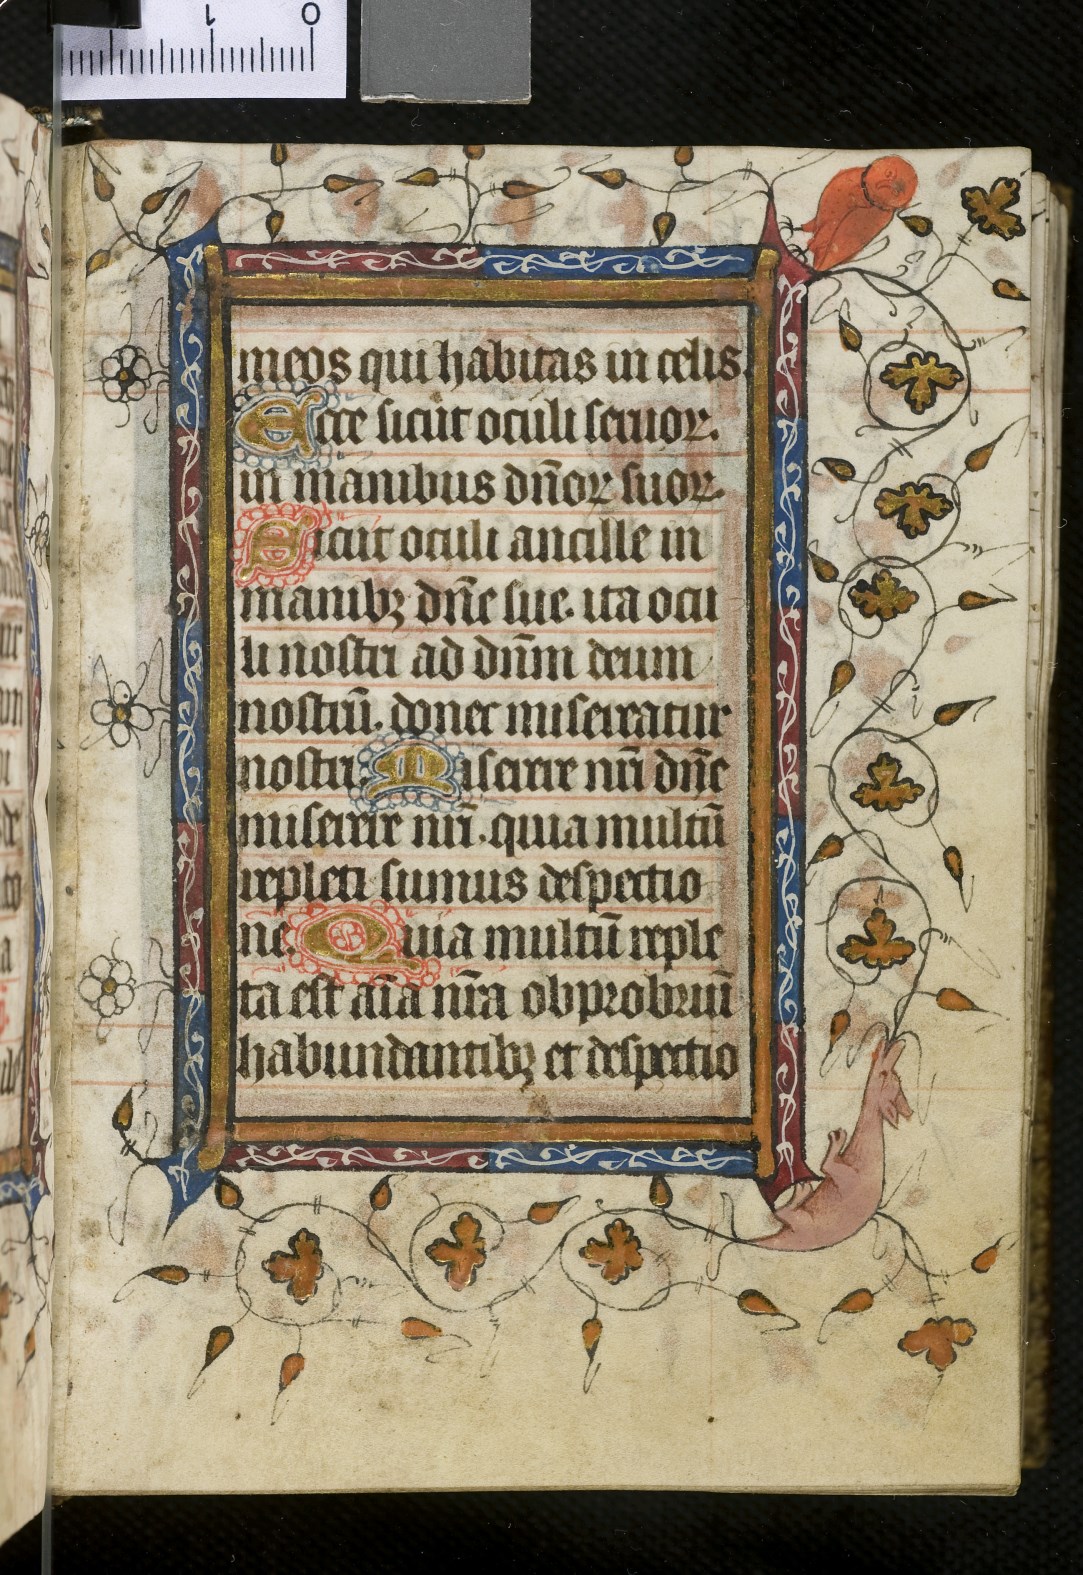 0 1
meos qui habitas in celis.
Ecce sicut oculi seruoꝝ.
in manibus dn̄oꝝ suoꝝ.
Sicut oculi ancille in
manibꝫ dn̄e sue. ita ocu
li nostri ad dn̄m deum
nostrū. donec misereatur
nostri. Miserere nr̄i dn̄e
miserere nr̄i. quia multū
repleti sumus despectio
ne. Quia multū reple
ta est aīa nr̄a obprobriū
habundantibꝫ et despectio